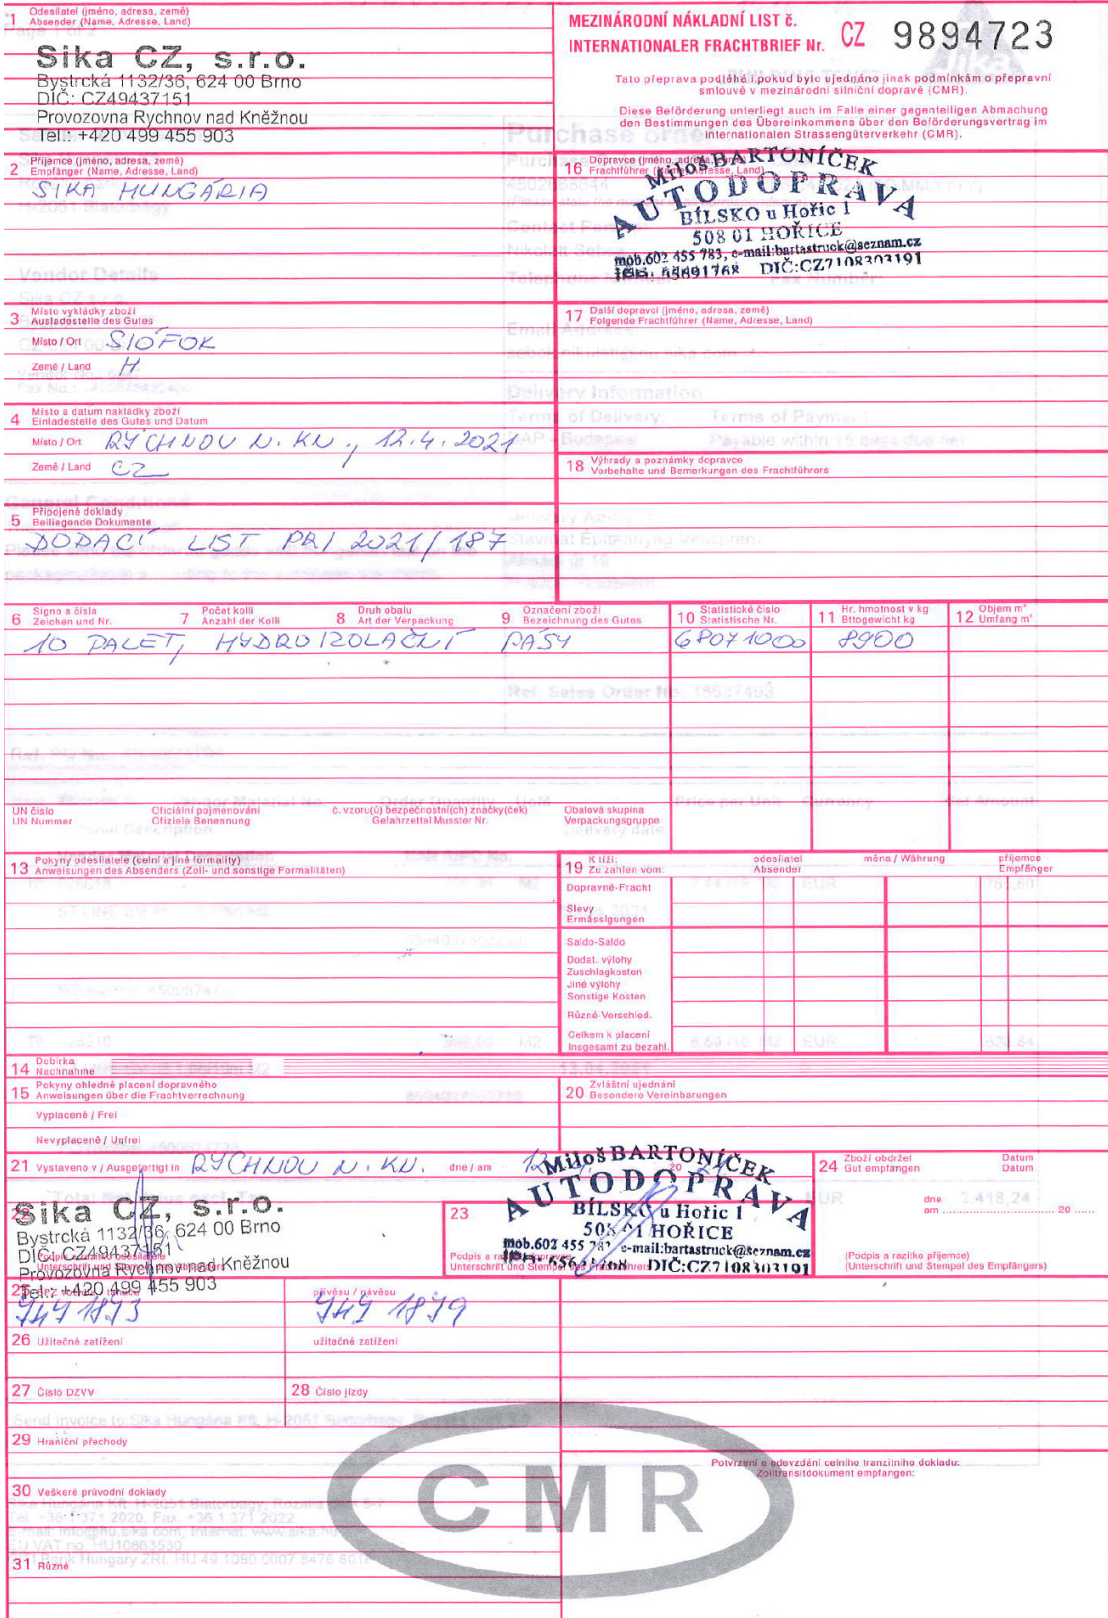 1 Odesílatel (jméno, adresa, země)
Absender (Name, Adresse, Land)
Sika CZ, s.r.o.
Bystrcká 1132/36, 624 00 Brno
DIČ: CZ49437151
Provozovna Rychnov nad Kněžnou
Tel.: +420 499 455 903
MEZINÁRODNÍ NÁKLADNÍ LIST č.
INTERNATIONALER FRACHTBRIEF Nr. CZ 9894723
Tato přeprava podléhá i pokud bylo ujednáno jinak podmínkám o přepravní
smlouvě v mezinárodní silniční dopravě (CMR).
Diese Beförderung unterliegt auch im Falle einer gegenteiligen Abmachung
den Bestimmungen des Übereinkommens über den Beförderungsvertrag im
internationalen Strassengüterverkehr (CMR).
2 Příjemce (jméno, adresa, země)
Empfänger (Name, Adresse, Land)
SIKA HUNGÁRIA
16 Dopravce (jméno, adresa, země)
Frachtführer (Name, Adresse, Land)
Miloš BARTONÍČEK
AUTODOPRAVA
BÍLSKO u Hořic 1
508 01 HOŘICE
mob.602 455 783, e-mail:bartastruck@seznam.cz
DIČ:CZ7108303191
Vendor Details
3 Místo vykládky zboží
Ausladestelle des Gutes
Místo / Ort SIÓFOK
Země / Land H
17 Další dopravci (jméno, adresa, země)
Folgende Frachtführer (Name, Adresse, Land)
Delivery Information
Terms of Delivery: Terms of Payment
4 Místo a datum nakládky zboží
Einladestelle des Gutes und Datum
Místo / Ort RYCHNOV N. KN., 12.4.2021
Země / Land CZ
18 Výhrady a poznámky dopravce
Vorbehalte und Bemerkungen des Frachtführers
5 Připojené doklady
Beiliegende Dokumente
DODACÍ LIST PRI 2021/187
6 Signo a čísla
Zeichen und Nr.
7 Počet kolli
Anzahl der Kolli
8 Druh obalu
Art der Verpackung
9 Označení zboží
Bezeichnung des Gutes
10 Statistické číslo
Statistische Nr.
11 Hr. hmotnost v kg
Bttogewicht kg
12 Objem m³
Umfang m³
10 PALET, HYDROIZOLAČNÍ PÁSY 68071000 8900
Ref. Sales Order No. 18637493
UN číslo
UN Nummer
Oficiální pojmenování
Ofiziele Benennung
č. vzoru(ů) bezpečnostní(ch) značky(ček)
Gefahrzettel Musster Nr.
Obalová skupina
Verpackungsgruppe
13 Pokyny odesílatele (celní a jiné formality)
Anweisungen des Absenders (Zoll- und sonstige Formalitäten)
19 K tíži:
Zu zahlen vom:
odesílatel
Absender
měna / Währung
příjemce
Empfänger
Dopravné-Fracht
Slevy
Ermässigungen
Saldo-Saldo
Dodat. výlohy
Zuschlagkosten
Jiné výlohy
Sonstige Kosten
Různé-Verschied.
Celkem k placení
Insgesamt zu bezahl.
14 Dobírka
Nachnahme
15 Pokyny ohledně placení dopravného
Anweisungen über die Frachtverrechnung
Vyplaceně / Frei
Nevyplaceně / Unfrei
20 Zvláštní ujednání
Besondere Vereinbarungen
21 Vystaveno v / Ausgefertigt in RYCHNOV N. KN. dne / am 12. 20
Sika CZ, s.r.o.
Bystrcká 1132/36, 624 00 Brno
DIČ: CZ49437151
Provozovna Rychnov nad Kněžnou
Tel.: +420 499 455 903
Podpis a razítko odesílatele
Unterschrift und Stempel des Absenders
23
Miloš BARTONÍČEK
AUTODOPRAVA
BÍLSKO u Hořic 1
508 01 HOŘICE
mob.602 455 783, e-mail:bartastruck@seznam.cz
DIČ:CZ7108303191
Podpis a razítko dopravce
Unterschrift und Stempel des Frachtführers
24 Zboží obdržel
Gut empfangen
Datum
Datum
EUR 2.418,24
dne
am 20
(Podpis a razítko příjemce)
(Unterschrift und Stempel des Empfängers)
25
přívěsu / návěsu
26 Užitečné zatížení
užitečné zatížení
27 Číslo DZVV
28 Číslo jízdy
29 Hraniční přechody
Potvrzení o odevzdání celního tranzitního dokladu:
Zolltransitdokument empfangen:
30 Veškeré průvodní doklady
CMR
Tel. +36 1 371 2020, Fax. +36 1 371 2022
EU VAT no. HU10863530
31 Různé